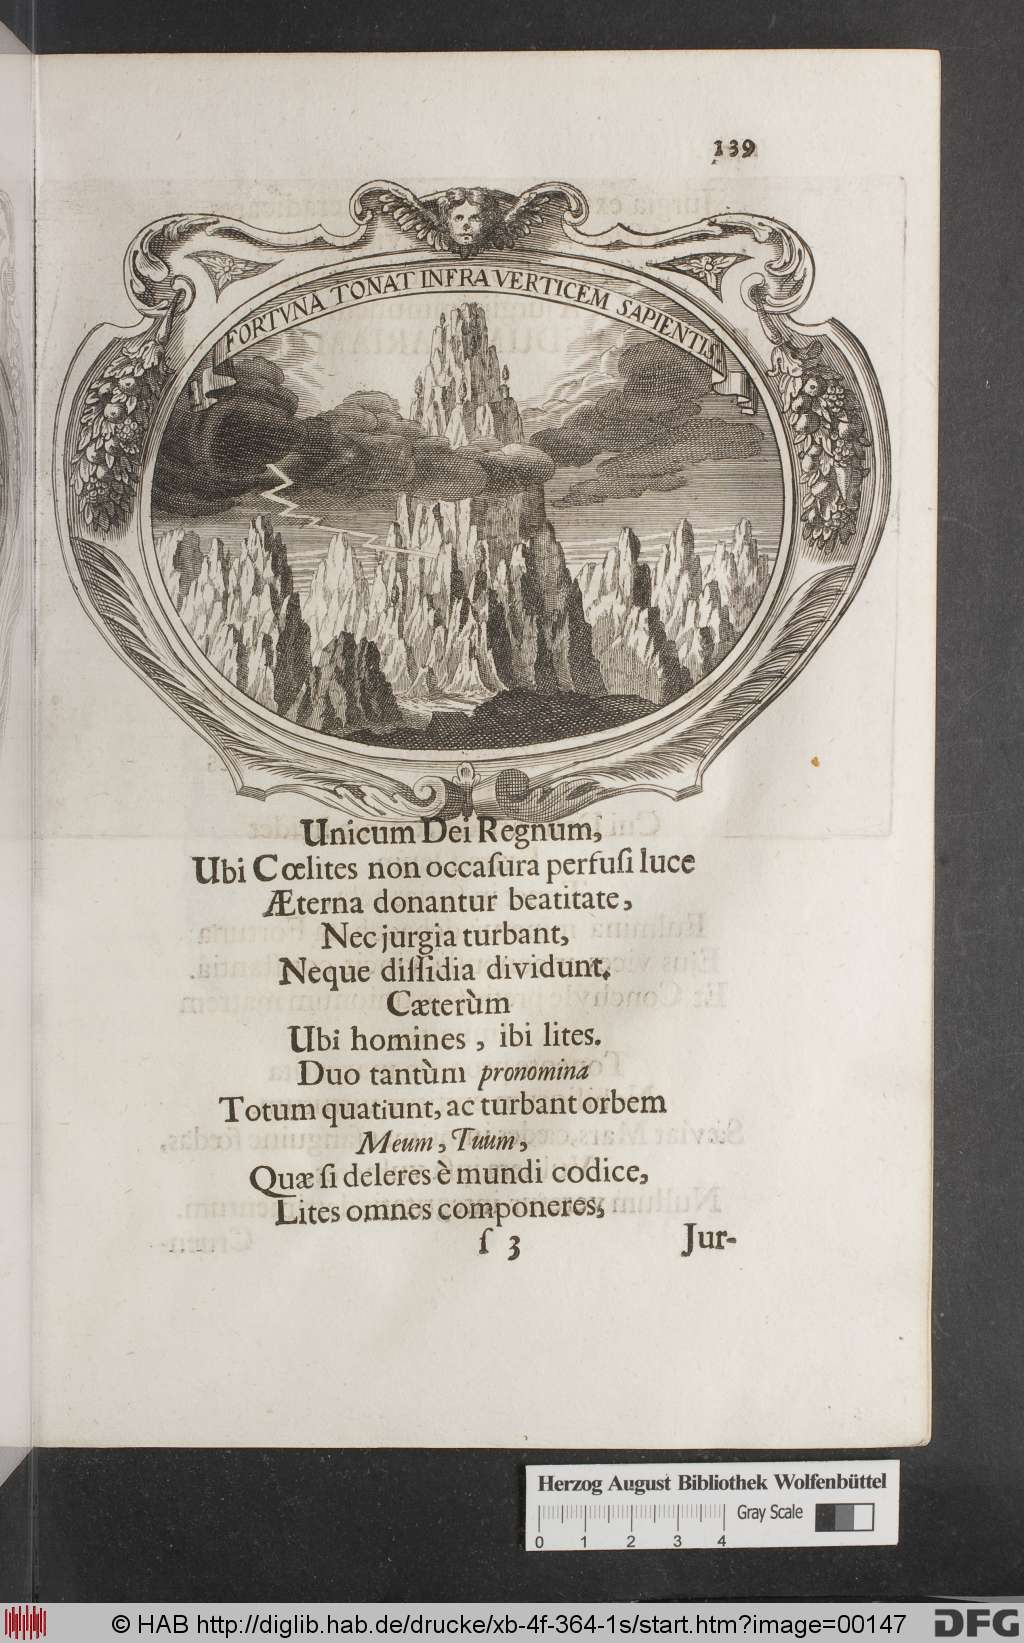 139
FORTVNA TONAT INFRA VERTICEM SAPIENTIS.
Unicum Dei Regnum,
Ubi Cœlites non occaſura perfuſi luce
Æterna donantur beatitate,
Nec jurgia turbant,
Neque diſſidia dividunt.
Cæterùm
Ubi homines, ibi lites.
Duo tantùm pronomina
Totum quatiunt, ac turbant orbem
Meum, Tuum,
Quæ ſi deleres è mundi codice,
Lites omnes componeres;
ſ 3 Jur-
Herzog August Bibliothek Wolfenbüttel
Gray Scale
0 1 2 3 4
© HAB http://diglib.hab.de/drucke/xb-4f-364-1s/start.htm?image=00147
DFG